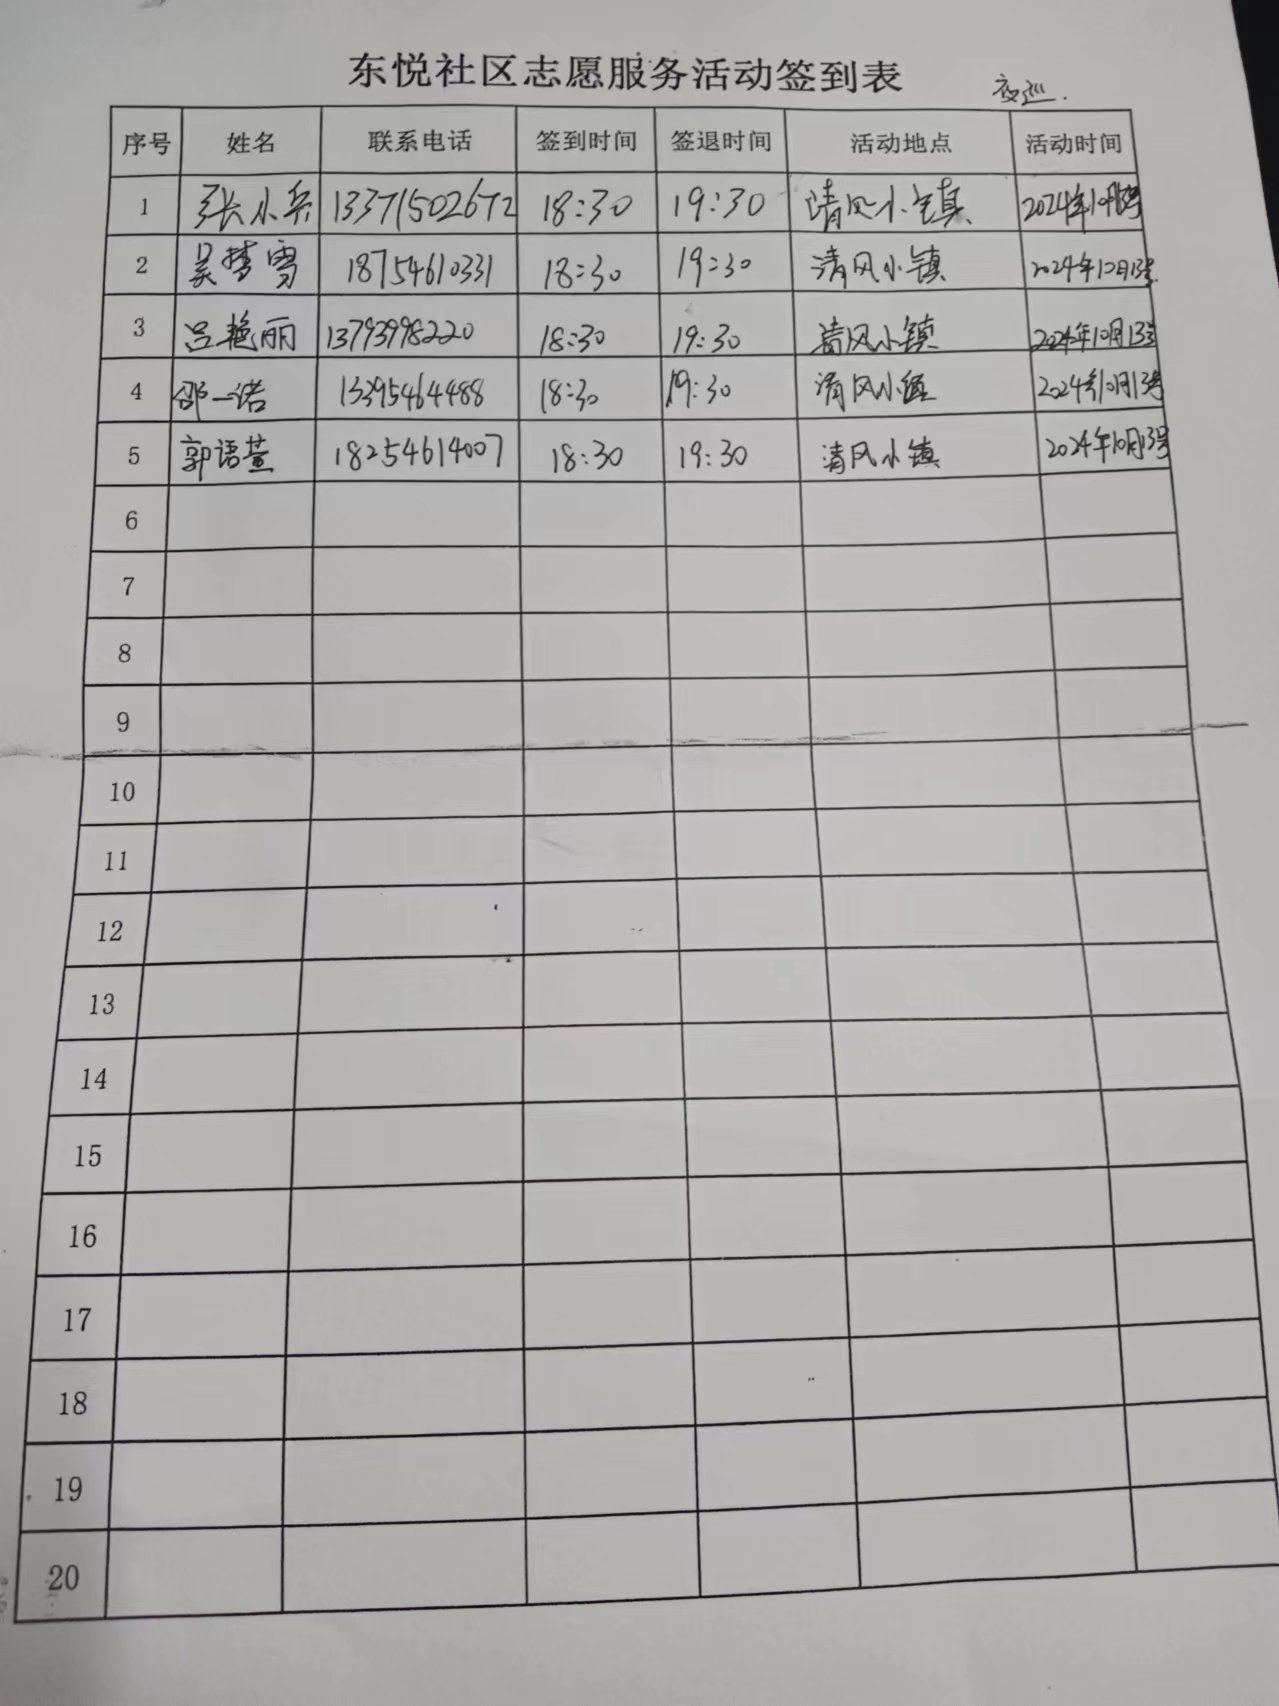 东悦社区志愿服务活动签到表
夜巡.
序号 姓名 联系电话 签到时间 签退时间 活动地点 活动时间
1 张小兵 13371502672 18:30 19:30 清风小镇 2024年10月13号
2 吴梦雪 18754610331 18:30 19:30 清风小镇 2024年10月13号
3 吕艳丽 13793998220 18:30 19:30 清风小镇 2024年10月13号
4 邵一诺 13395464488 18:30 19:30 清风小镇 2024年10月13号
5 郭语萱 18254614007 18:30 19:30 清风小镇 2024年10月13号
6
7
8
9
10
11
12
13
14
15
16
17
18
19
20